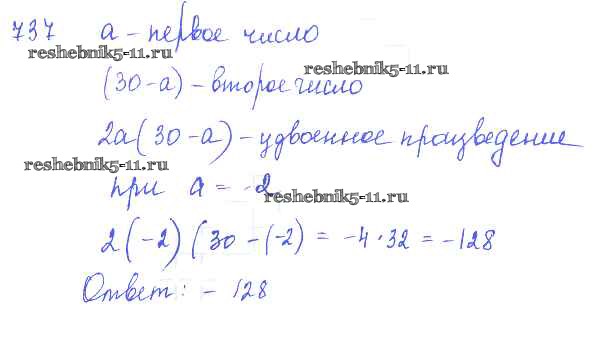 737 a - первое число
reshebnik5-11.ru
reshebnik5-11.ru
(30-a) - второе число
2a(30-a) - удвоенное произведение
reshebnik5-11.ru
при a = -2
reshebnik5-11.ru
2(-2)(30-(-2) = -4·32 = -128
Ответ: - 128